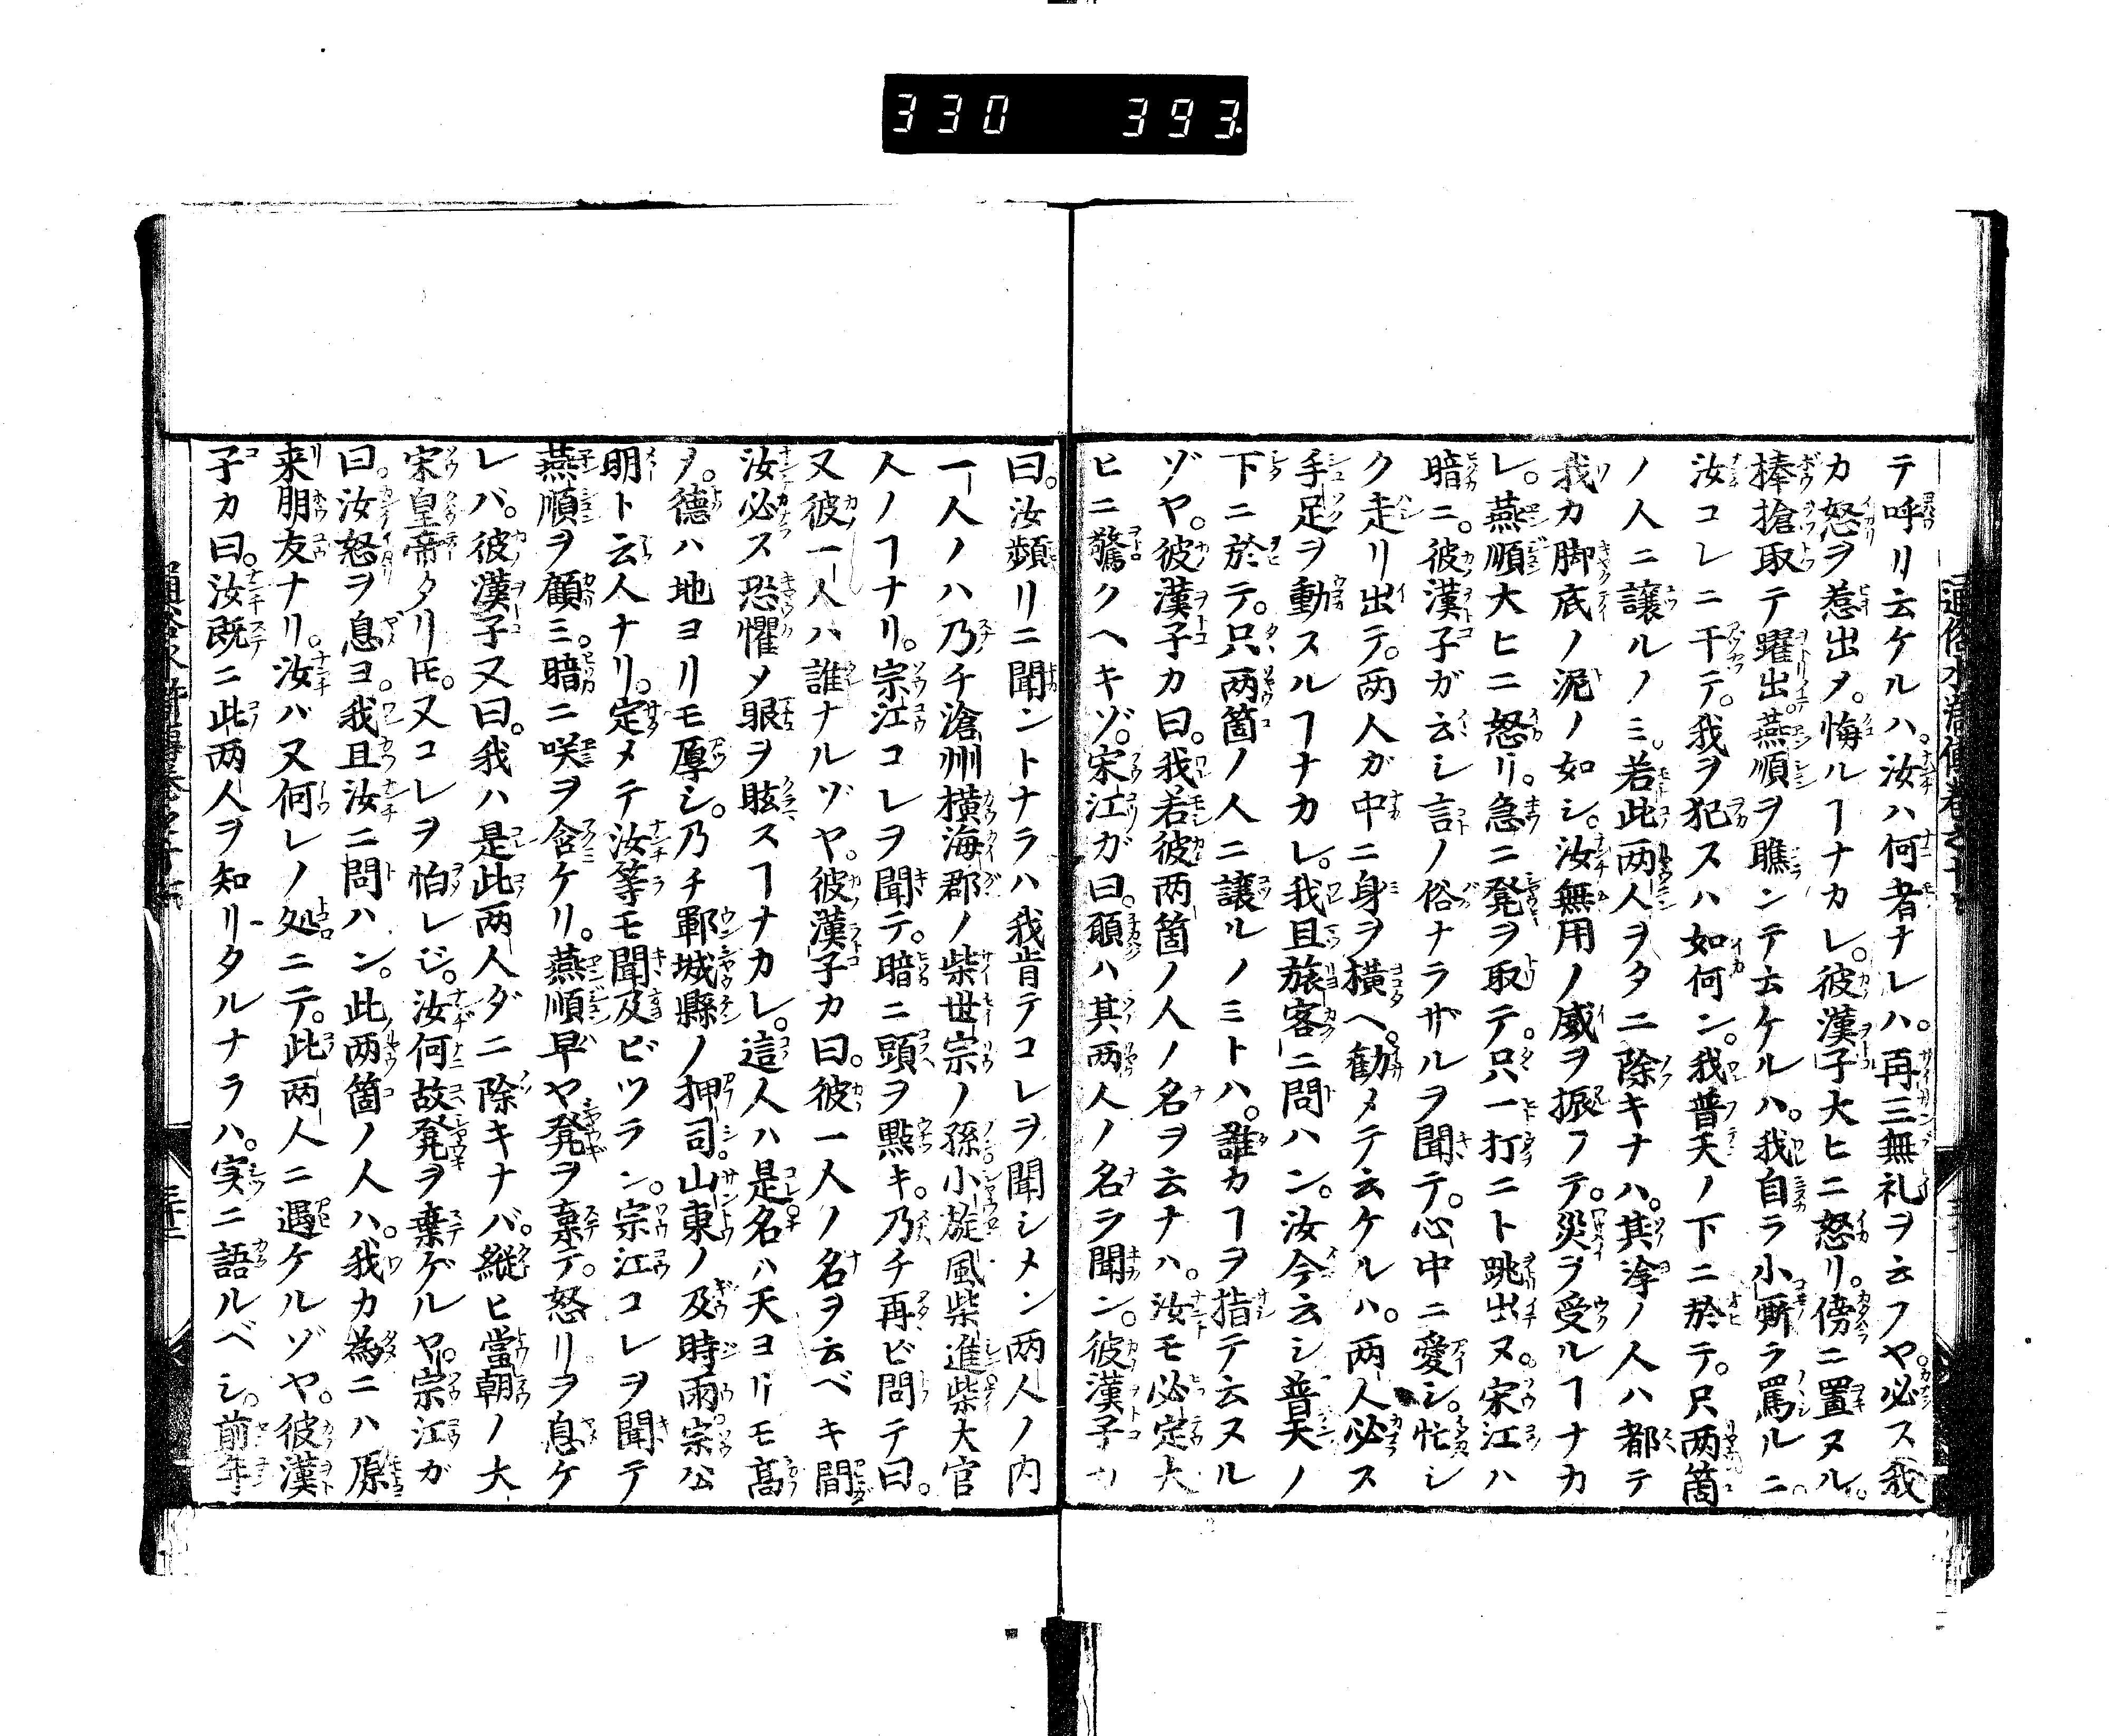 330 393
通俗水滸傳巻之十
テ呼リ云ケルハ。汝ハ何者ナレハ。再三無礼ヲ云フヤ。必ス我
カ怒ヲ惹出メ。悔ルヿナカレ。彼漢子大ヒニ怒リ。傍ニ置ヌル。
捧搶取テ躍出。燕順ヲ瞧ンテ云ケルハ。我自ラ小厮ラ罵ルニ。
汝コレニ干テ。我ヲ犯スハ如何ン。我普天ノ下ニ於テ。只两箇
ノ人ニ譲ルノミ。若此两人ヲタニ除キナハ。其滓ノ人ハ都テ
我カ脚底ノ泥ノ如シ。汝無用ノ威ヲ振フテ。災ヲ受ルヿナカ
レ。燕順大ヒニ怒リ。急ニ凳ヲ取テ。只一打ニト跳出ヌ。宋江ハ
暗ニ。彼漢子ガ云シ言ノ俗ナラザルヲ聞テ。心中ニ愛シ。忙シ
ク走リ出テ。两人ガ中ニ身ヲ横ヘ。勧メテ云ケルハ。两人必ス
手足ヲ動スルヿナカレ。我且旅客ニ問ハン。汝今云シ普天ノ
下ニ於テ。只两箇ノ人ニ譲ルノミトハ。誰カヿヲ指テ云ヌル
ゾヤ。彼漢子カ曰。我若彼两箇ノ人ノ名ヲ云ナハ。汝モ必定大
ヒニ驚クヘキゾ。宋江ガ曰。願ハ其两人ノ名ヲ聞ン。彼漢子カ
曰。汝頻リニ聞ントナラハ我肯テコレヲ聞シメン两人ノ内
一人ノハ乃チ滄州横海郡ノ柴世宗ノ孫小旋風柴進柴大官
人ノヿナリ。宗江コレヲ聞テ。暗ニ頭ヲ點キ。乃チ再ビ問テ曰。
又彼一人ハ誰ナルゾヤ。彼漢子カ曰。彼一人ノ名ヲ云ベキ間
汝必ス恐懼メ眼ヲ眩スヿナカレ。這人ハ是名ハ天ヨリモ高
ク。德ハ地ヨリモ厚シ。乃チ鄆城縣ノ押司。山東ノ及時雨宗公
明ト云人ナリ。定メテ汝等モ聞及ビツラン。宗江コレヲ聞テ
燕順ヲ顧ミ。暗ニ咲ヲ含ケリ。燕順早ヤ凳ヲ棄テ。怒リヲ息ケ
レバ。彼漢子又曰。我ハ是此两人ダニ除キナバ。縦ヒ當朝ノ大
宋皇帝タリ𪜈。又コレヲ怕レジ。汝何故凳ヲ棄ゲルヤ。宗江ガ
曰。汝怒ヲ息ヨ。我且汝ニ問ハン。此两箇ノ人ハ。我カ為ニハ原
来朋友ナリ。汝ハ又何レノ処ニテ。此两人ニ遇ケルゾヤ。彼漢
子カ曰。汝既ニ此两人ヲ知リタルナラハ。実ニ語ルベシ。前年